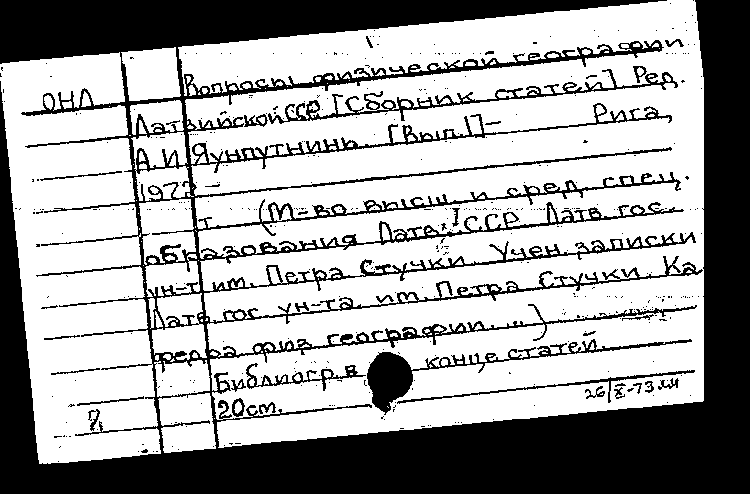 Вопросы физической географии
ОНЛ
Латвийской ССР [Сборник статей] Ред.
А.И. Яунпутнинь. [Вып. 1] – Рига,
1972 –
т. (М-во высш. и сред. спец.
образования Латв. ССР Латв. гос.
ун-т им. Петра Стучки. Учен. записки
Латв. гос. ун-та им. Петра Стучки. Ка
федра физ географии. ..)
Библиогр. в конце статей.
20 см.
26/X-73